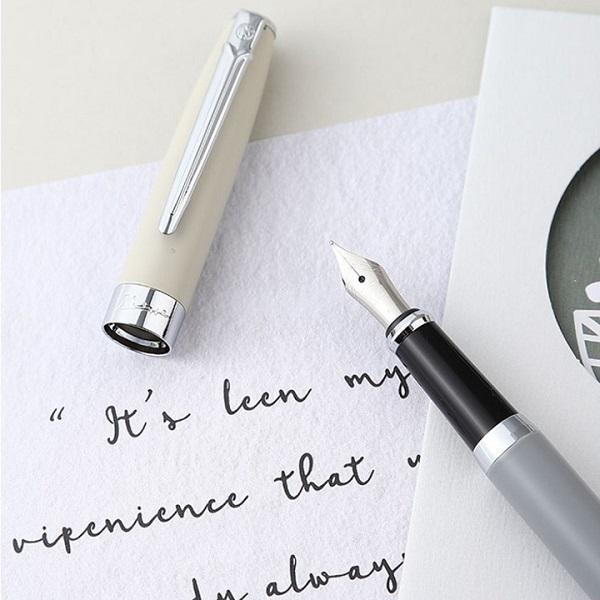 “ It's leen my
vipenience that
dy always